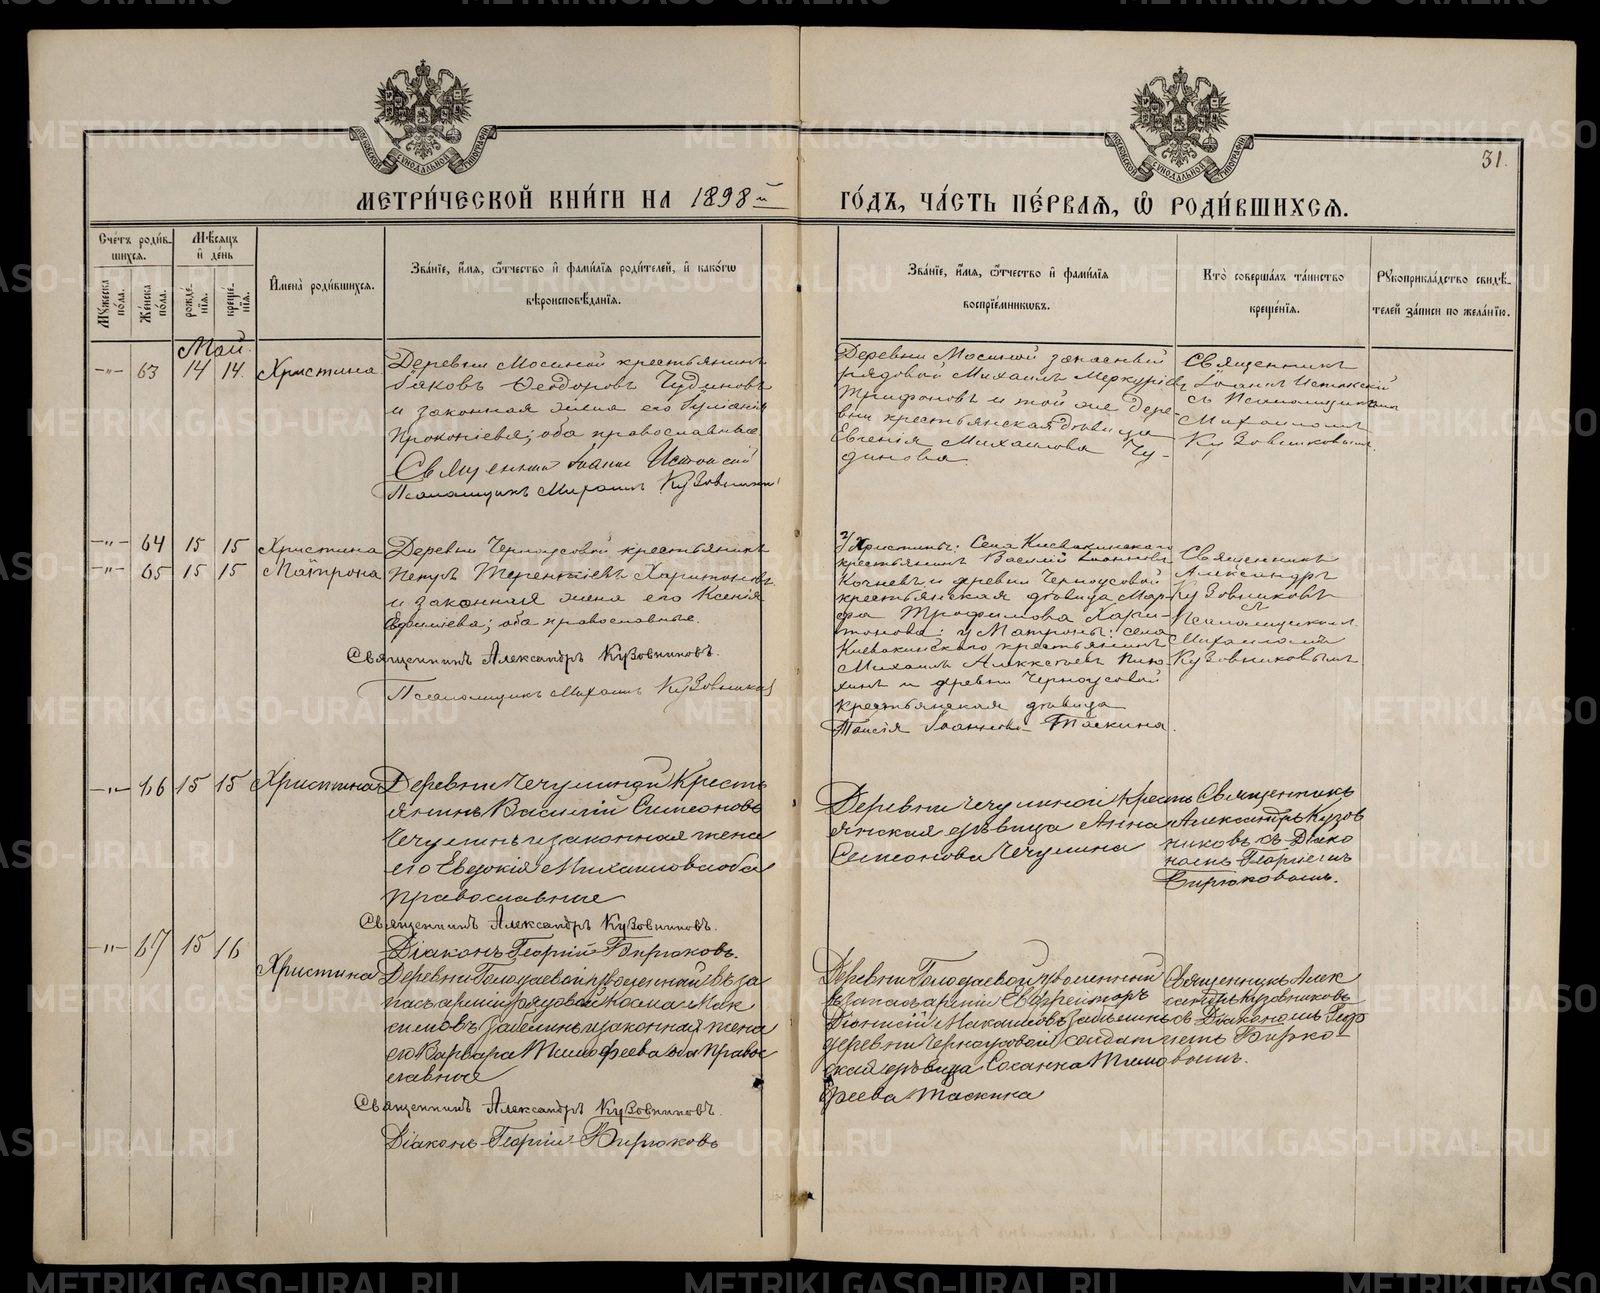 МЕТРИ́ЧЕСКОЙ КНИ́ГИ НА 1898й
ГО́ДЪ, ЧА́СТЬ ПЕ́РВАѦ, Ѡ҆ РОДИ́ВШИХСѦ.
31.
МОСКОВСКОЙ СѴНОДАЛЬНОЙ ТИПОГРАФІИ
МОСКОВСКОЙ СѴНОДАЛЬНОЙ ТИПОГРАФІИ
Сче́тъ роди́в-
шихсѧ.
Мꙋ́жеска по́ла.
Же́нска по́ла.
Мѣ́сѧцъ
и҆ де́нь
рожде́-
нїѧ.
креще́-
нїѧ.
И҆мена̀ роди́вшихсѧ.
Зва́нїе, и҆́мѧ, ѻ҆́тчество и҆ фами́лїѧ роди́телей, и҆ како́гѡ
вѣроисповѣ́данїѧ.
Зва́нїе, и҆́мѧ, ѻ҆́тчество и҆ фами́лїѧ
воспрїе́мникѡвъ.
Кто̀ соверша́лъ та́инство
креще́нїѧ.
Рꙋкоприкла́дство свидѣ́-
телей за́писи по жела́нїю.
Май.
-"- 63 14 14. Христина
Деревни Мосиной крестьянинъ
Іаковъ Ѳеодоровъ Чудиновъ
и законная жена его Іуліанія
Прокопіева; оба православные.
Священникъ Іоаннъ Истокскій
Псаломщикъ Михаилъ Кузовников
Деревни Мосиной запасный
рядовой Михаилъ Меркуріевъ
Трифоновъ и той же дере-
вни крестьянская дѣвица
Евгенія Михаилова Чу-
динова.
Священникъ
Іоаннъ Истокскій
съ Псаломщикомъ
Михаиломъ
Кузовниковымъ.
-"- 64 15 15 Христина
-"- 65 15 15 Матрона
Деревни Черноусовой крестьянинъ
Петръ Терентіевъ Харитоновъ
и законная жена его Ксенія
Ефимиева; оба православные.
Священникъ Александръ Кузовниковъ.
Псаломщикъ Михаилъ Кузовников
У Христины: Села Кисвакинскаго
крестьянинъ Василій Іоанновъ
Кочневъ и деревни Черноусовой
крестьянская дѣвица Мар-
фа Трофимова Хари-
тонова: у Матроны: села
крестьянинъ
Михаилъ Алексѣевъ
и деревни Черноусовой
крестьянская дѣвица
Таисія Іоаннова Таскина.
Священникъ
Александръ
Кузовниковъ
съ
Псаломщикомъ
Михаиломъ
Кузовниковымъ
-"- 66 15 15 Христина
Деревни Чечулиной Кресть
янинъ Василій Симеоновъ
Чечулинъ и законная жена
его Евдокія Михаилова оба
православные
Священникъ Александръ Кузовниковъ.
Діаконъ Георгій Бирюковъ.
Деревни Чечулиной кресть
янская дѣвица Анна
Симеонова Чечулина
Священникъ
Александръ Кузов
никовъ съ Діако
номъ Георгіемъ
Бирюковымъ.
-"- 67 15 16 Христина
Деревни Голодаевой уволенный въ за
пасъ арміи рядовой Косма Мак
симовъ Забелинъ и законная жена
его Варвара Тимофеева оба право
славные
Священникъ Александръ Кузовниковъ.
Діаконъ Георгій Бирюковъ
Деревни Голодаевой уволенный
въ запасъ арміи Ефрейторъ
Діонисій Максимовъ Забелинъ
деревни Черноусовой солдат
ская дѣвица Сосанна Тимо
феева Таскина
Священникъ Алек
сандръ Кузовниковъ
съ Діакономъ Геор
гіемъ Бирюко-
вымъ.
METRIKI.GASO-URAL.RU